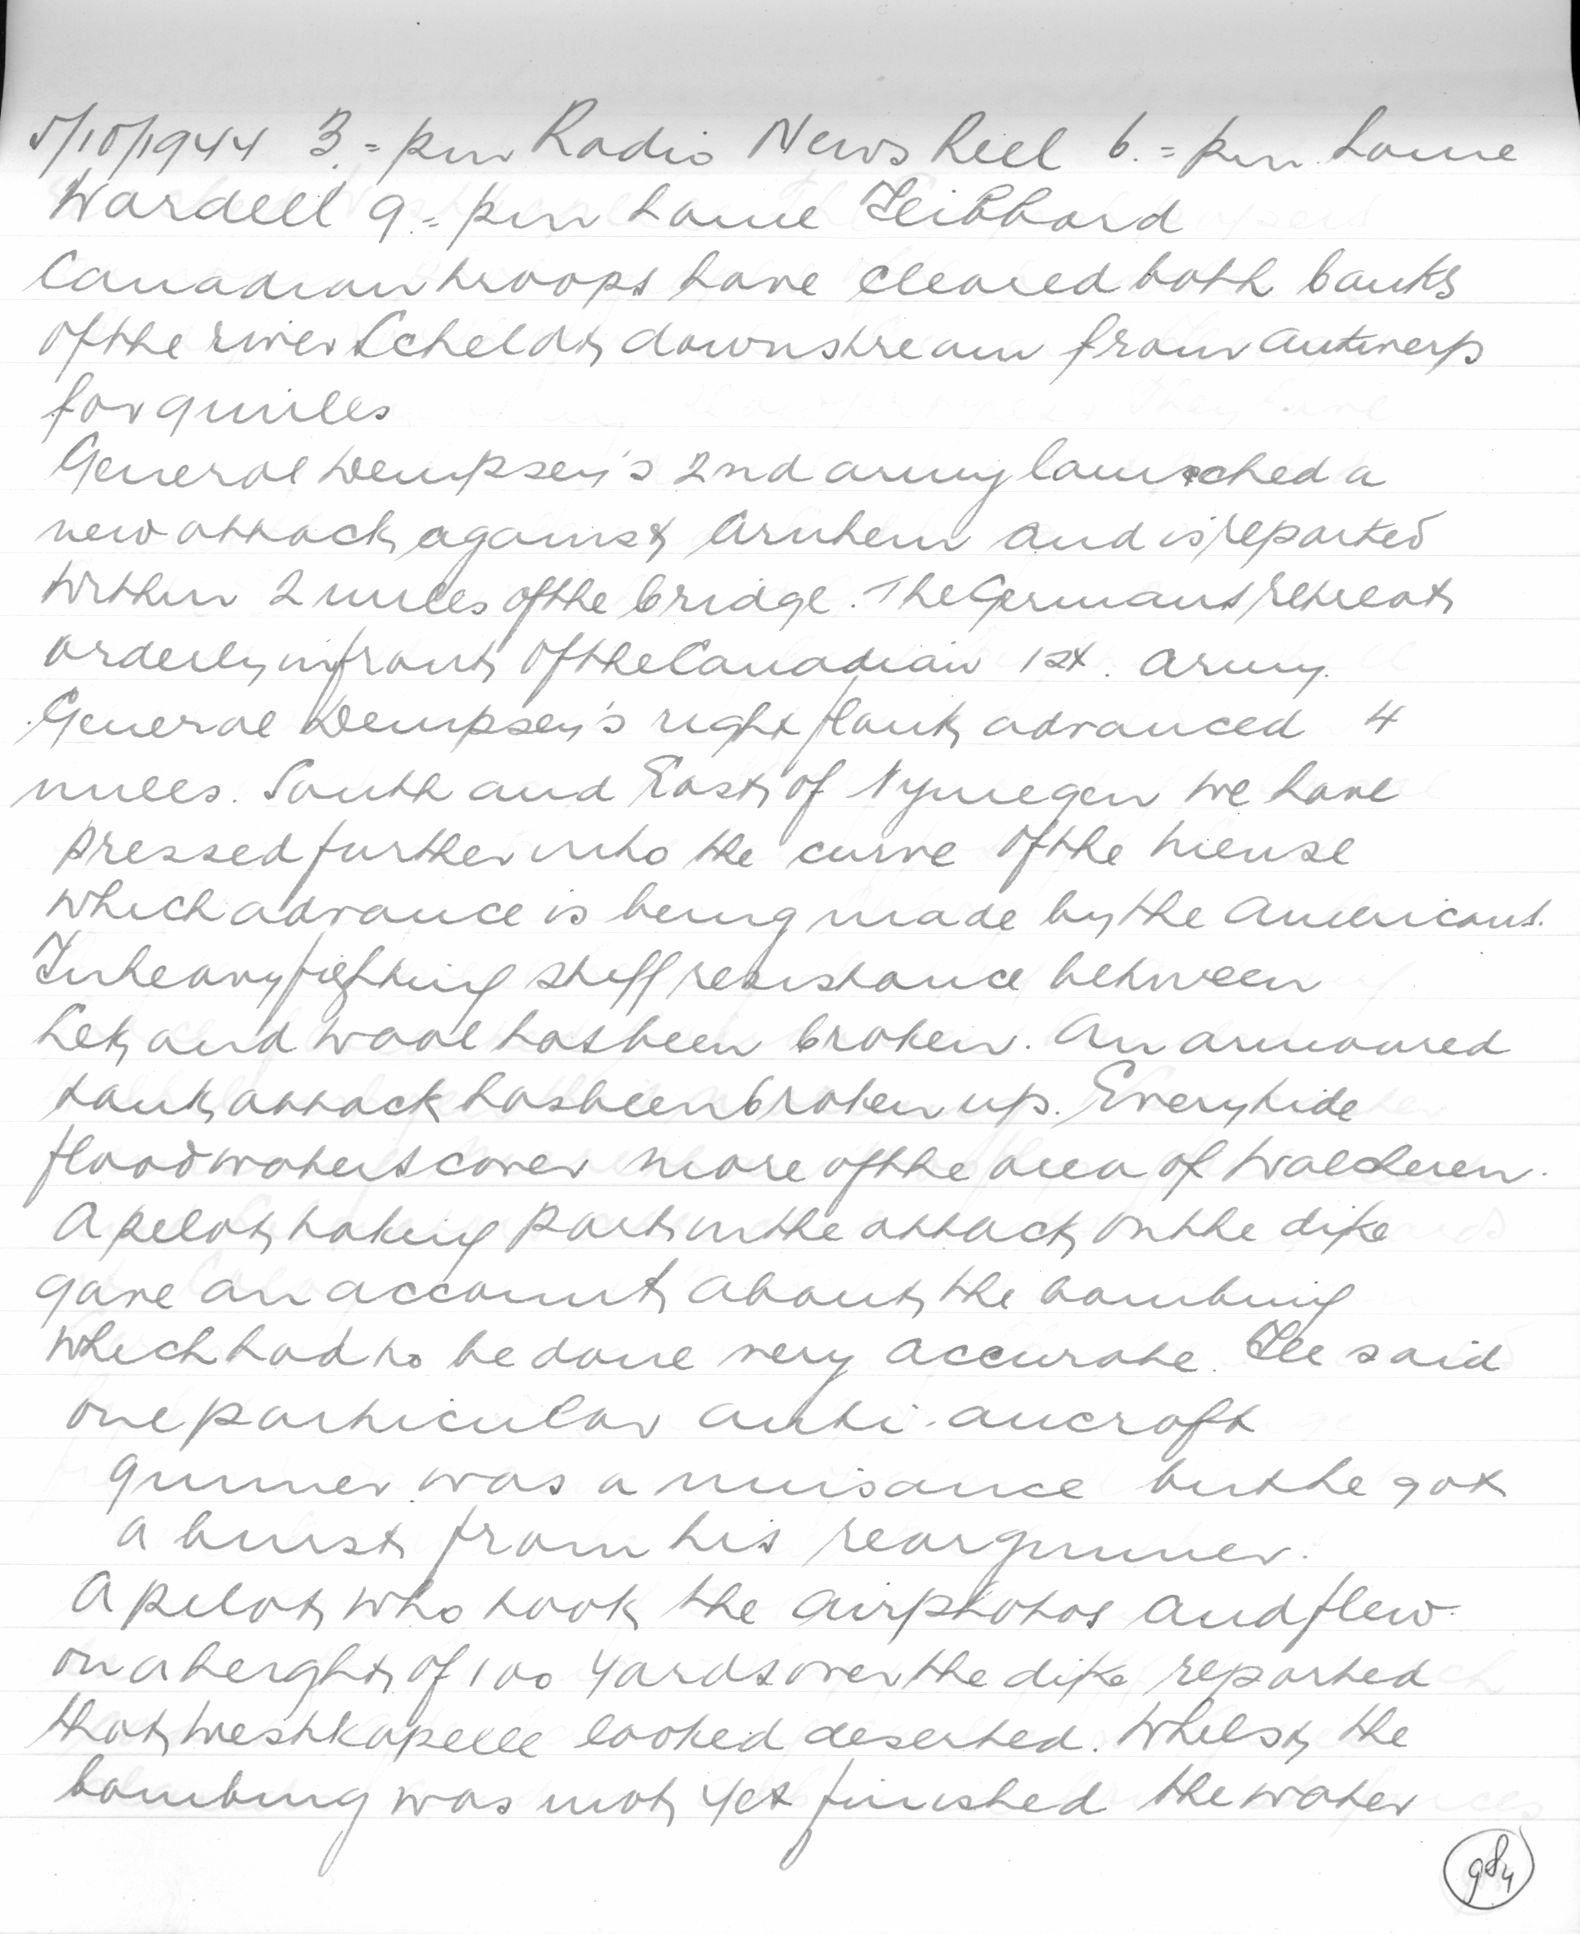 5/10/1944 3.= pm Radio News Reel 6.= pm home
Wardell 9.= pm home Hibberd
Canadian troops have cleared both banks
of the river Scheldt downstream from Antwerp
for 9 miles
General Dempsey's 2nd army launched a
new attack against Arnhem and is reported
within 2 miles of the bridge. The Germans retreat
orderly in front of the Canadian 1st. army.
General Dempsey's right flank advanced 4
miles. South and East of Nymegen we have
pressed further into the curve of the Meuse
which advance is being made by the Americans.
In heavy fighting stiff resistance between
Lek and Waal has been broken. An armoured
tank attack has been broken up. Every tide
floodwaters cover more of the area of Walcheren.
A pilot taking part in the attack on the dike
gave an account about the bombing
which had to be done very accurate. He said
one particular anti-aircraft
gunner was a nuisance but he got
a burst from his reargunner.
A pilot who took the airphotos and flew
on a height of 100 yards over the dike reported
that Westkapelle looked deserted. Whilst the
bombing was not yet finished the water